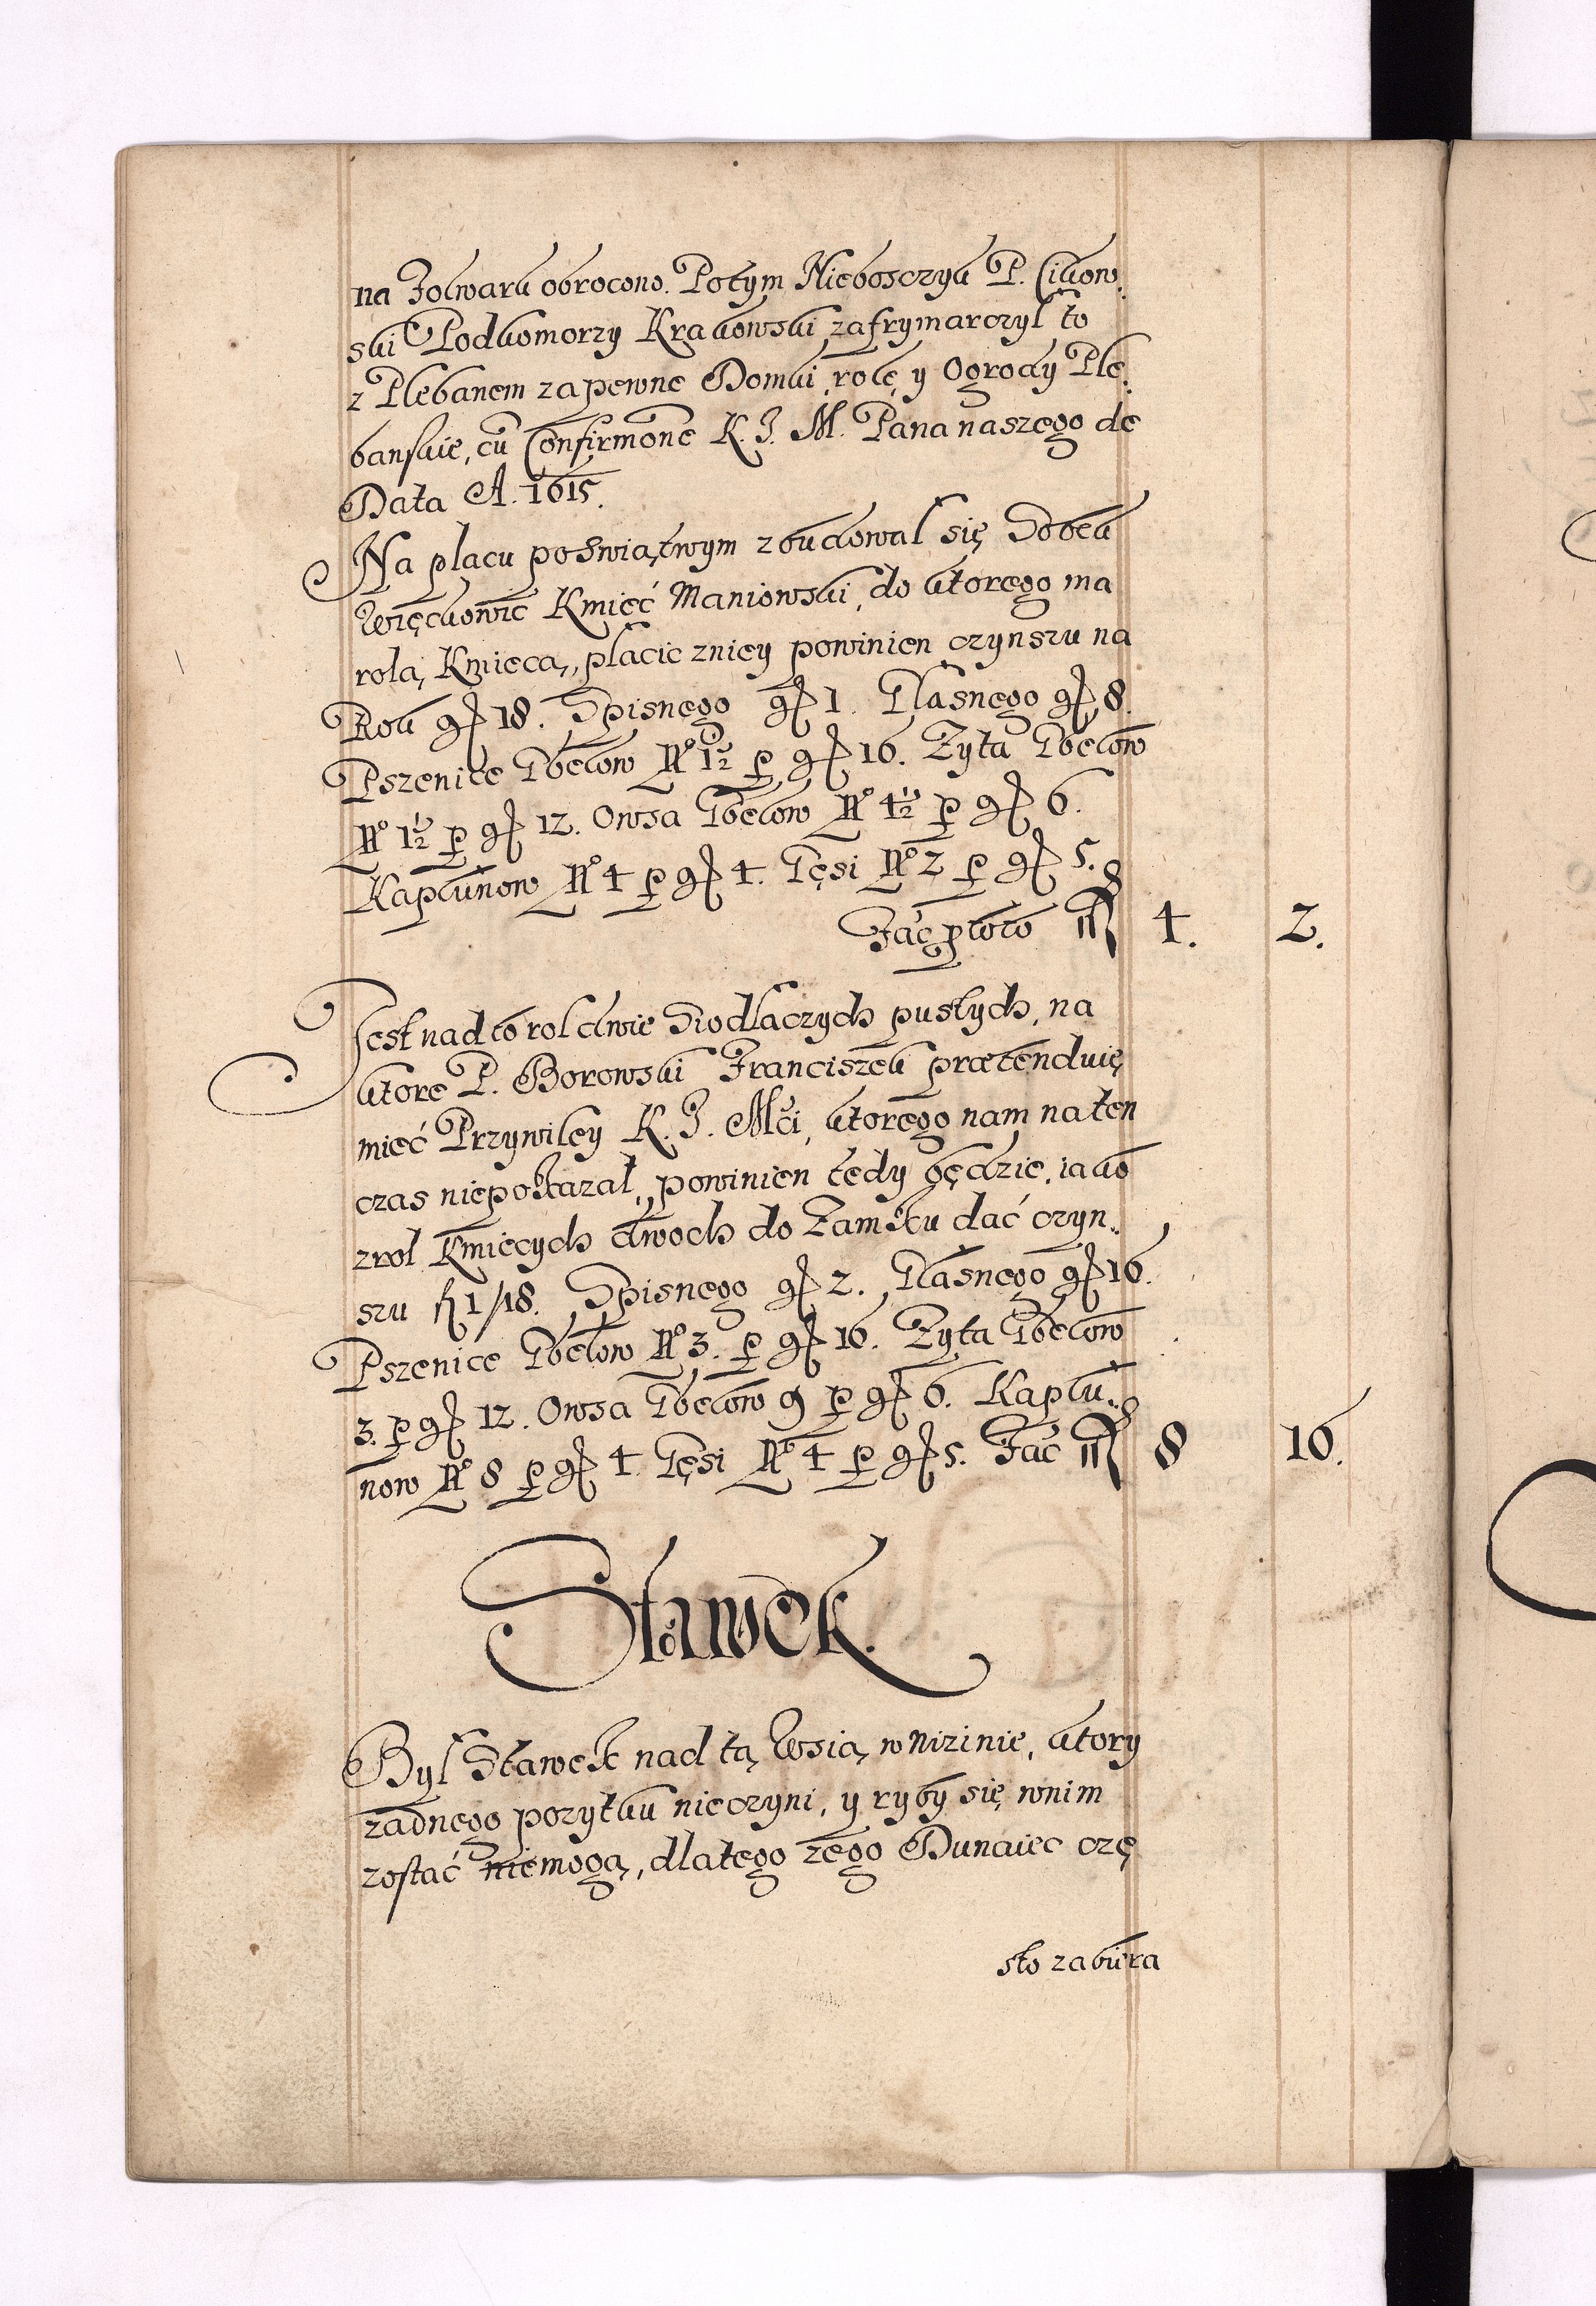 na Folwark obrocono. Potym Nieboszczyk P. Cikow-
ski Podkomorzy Krakowski zafrymarczył to
z Plebanem za pewne Domki, role, y Ogrody Ple-
banskie, cũ Confirmõne K. J. M. Pana naszego de
Data A. 1615.
Na placu poświątnym zbudowal się Sobek
Więckowic Kmieć Maniowski, do ktorego ma
rolą Kmiecą, placic zniey powinien czynszu na
Rok gr 18. Spisnego gr 1. Ciasnego gr 8.
Pszenice Gbelow No 1½ p gr 16. Zyta Gbelow
No 1½ p gr 12. Owsa Gbelow No 4½ p gr 6.
Kaplunow No 4 p gr 4. Gęsi No 2 p gr 5.
Fac 4. 2.
Jest nadto rol dwie Siodlaczych pustych, na
ktore P. Borowski Franciszek prætenduię
mieć Przywiley K. J. Mci, ktorego nam na ten
czas niepokazał, powinien tedy będzie, iako
zrol Kmiecych dwoch do Zamku dać czyn-
szu fl 1/18. Spisnego gr 2. Ciasnego gr 16.
Pszenice Gbelow No 3. p gr 16. Zyta Gbelow
3. p gr 12. Owsa Gbelow 9 p gr 6. Kaplu-
now No 8 p gr 4. Gęsi No 4 p gr 5. Fac 8 16.
Stawek.
Byl Stawek nad tą Wsią w nizinie, ktory
zadnego pozytku nieczyni, y ryby się wnim
zostać niemogą, dlatego zego Dunaiec czę
sto zabiera